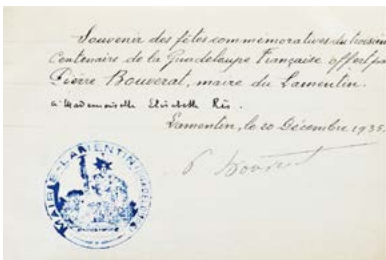 Souvenir des fêtes commemoratives du troisième
Centenaire de la Guadeloupe Française offert par
Pierre Bouverat, maire du Lamentin.
à Mademoiselle Elisabeth
Lamentin, le 20 Décembre 1935.
MAIRIE LAMENTIN